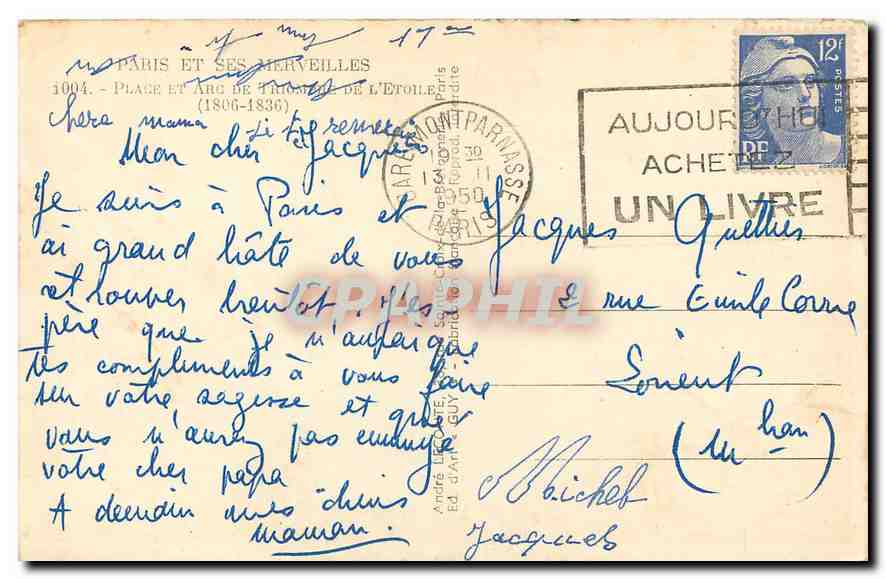 17
PARIS ET SES MERVEILLES
1004. - PLACE ET ARC DE TRIOMPHE DE L'ETOILE
(1806-1836)
chere maman
Mon cher Jacques
Je suis à Paris et
ai grand hâte de vous
retrouver bientôt. J'es
père que je n'aurai que
des compliments à vous faire
sur votre sagesse et que
vous n'aurez pas ennuyé
votre cher papa
A demain mes chéris
maman.
André LECONTE, Sainte-Croix-de-la-Bretonnerie, Paris
Ed. d'Art GUY - Fabrication Française - Reprod. Interdite
GARE MONTPARNASSE
13 - 11
1950
PARIS
12F
POSTES
RF
AUJOURD'HUI
ACHETEZ
UN LIVRE
Jacques
2 rue Emile
Lorient
(
Michel
Jacques
CPAPHIL